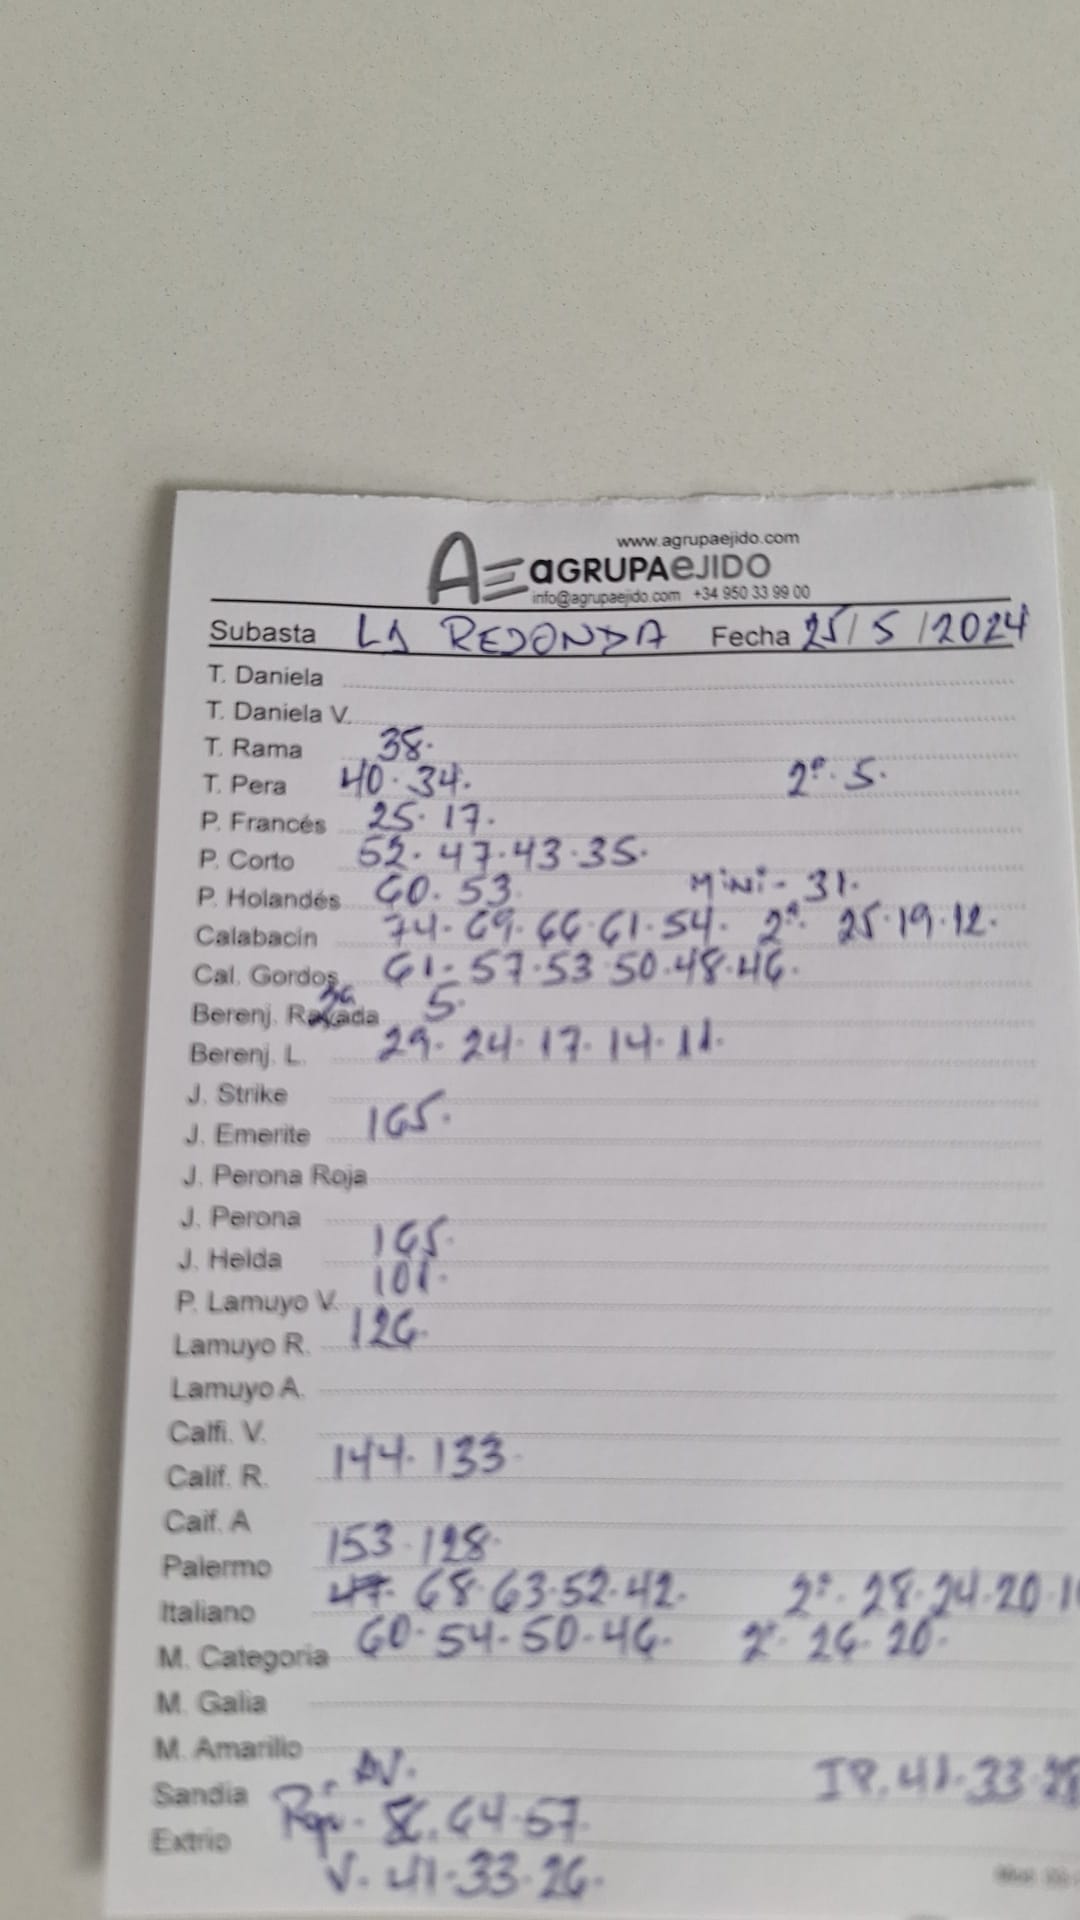 www.agrupaejido.com
AE aGRUPAeJIDO
info@agrupaejido.com +34 950 33 99 00
Subasta LA REDONDA Fecha 25/5/2024
T. Daniela
T. Daniela V.
T. Rama 38.
T. Pera 40. 34. 2ª. 5.
P. Francés 25. 17.
P. Corto 52. 47. 43. 35.
P. Holandés 60. 53. MiNi - 31.
Calabacin 74. 69. 66. 61. 54. 2ª. 25. 19. 12.
Cal. Gordos 61. 57. 53. 50. 48. 46.
Berenj. Rayada 5.
Berenj. L. 29. 24. 17. 14. 11.
J. Strike
J. Emerite 165.
J. Perona Roja
J. Perona
J. Helda 165.
P. Lamuyo V. 101.
Lamuyo R. 126.
Lamuyo A.
Calfi. V.
Calif. R. 144. 133.
Caif. A
Palermo 153. 128.
Italiano 47. 68. 63. 52. 42. 2ª. 28. 24. 20.
M. Categoria 60. 54. 50. 46. 2ª. 26. 20.
M. Galia
M. Amarillo
Sandia IP. 41. 33.
Extrio 64. 57.
V. 41. 33. 26.